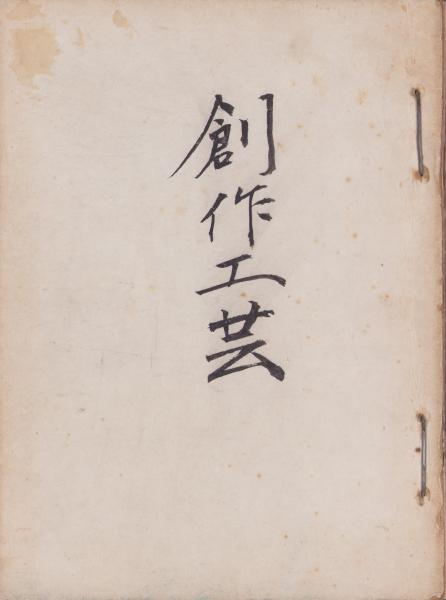 創作工芸